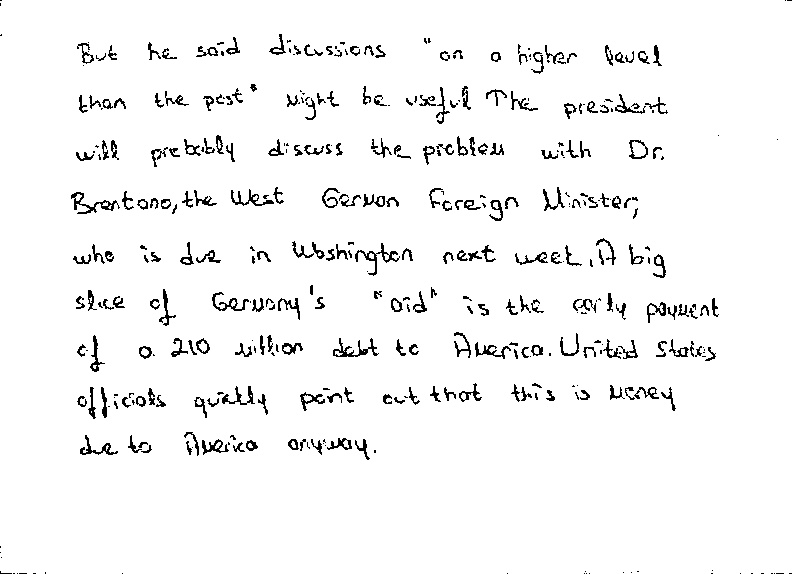 But he said discussions "on a higher level
than the past" might be useful The president
will probably discuss the problem with Dr.
Brentano, the West German Foreign Minister,
who is due in Washington next week. A big
slice of Germany's "aid" is the early payment
of a 210 million debt to America. United States
officials quietly point out that this is money
due to America anyway.